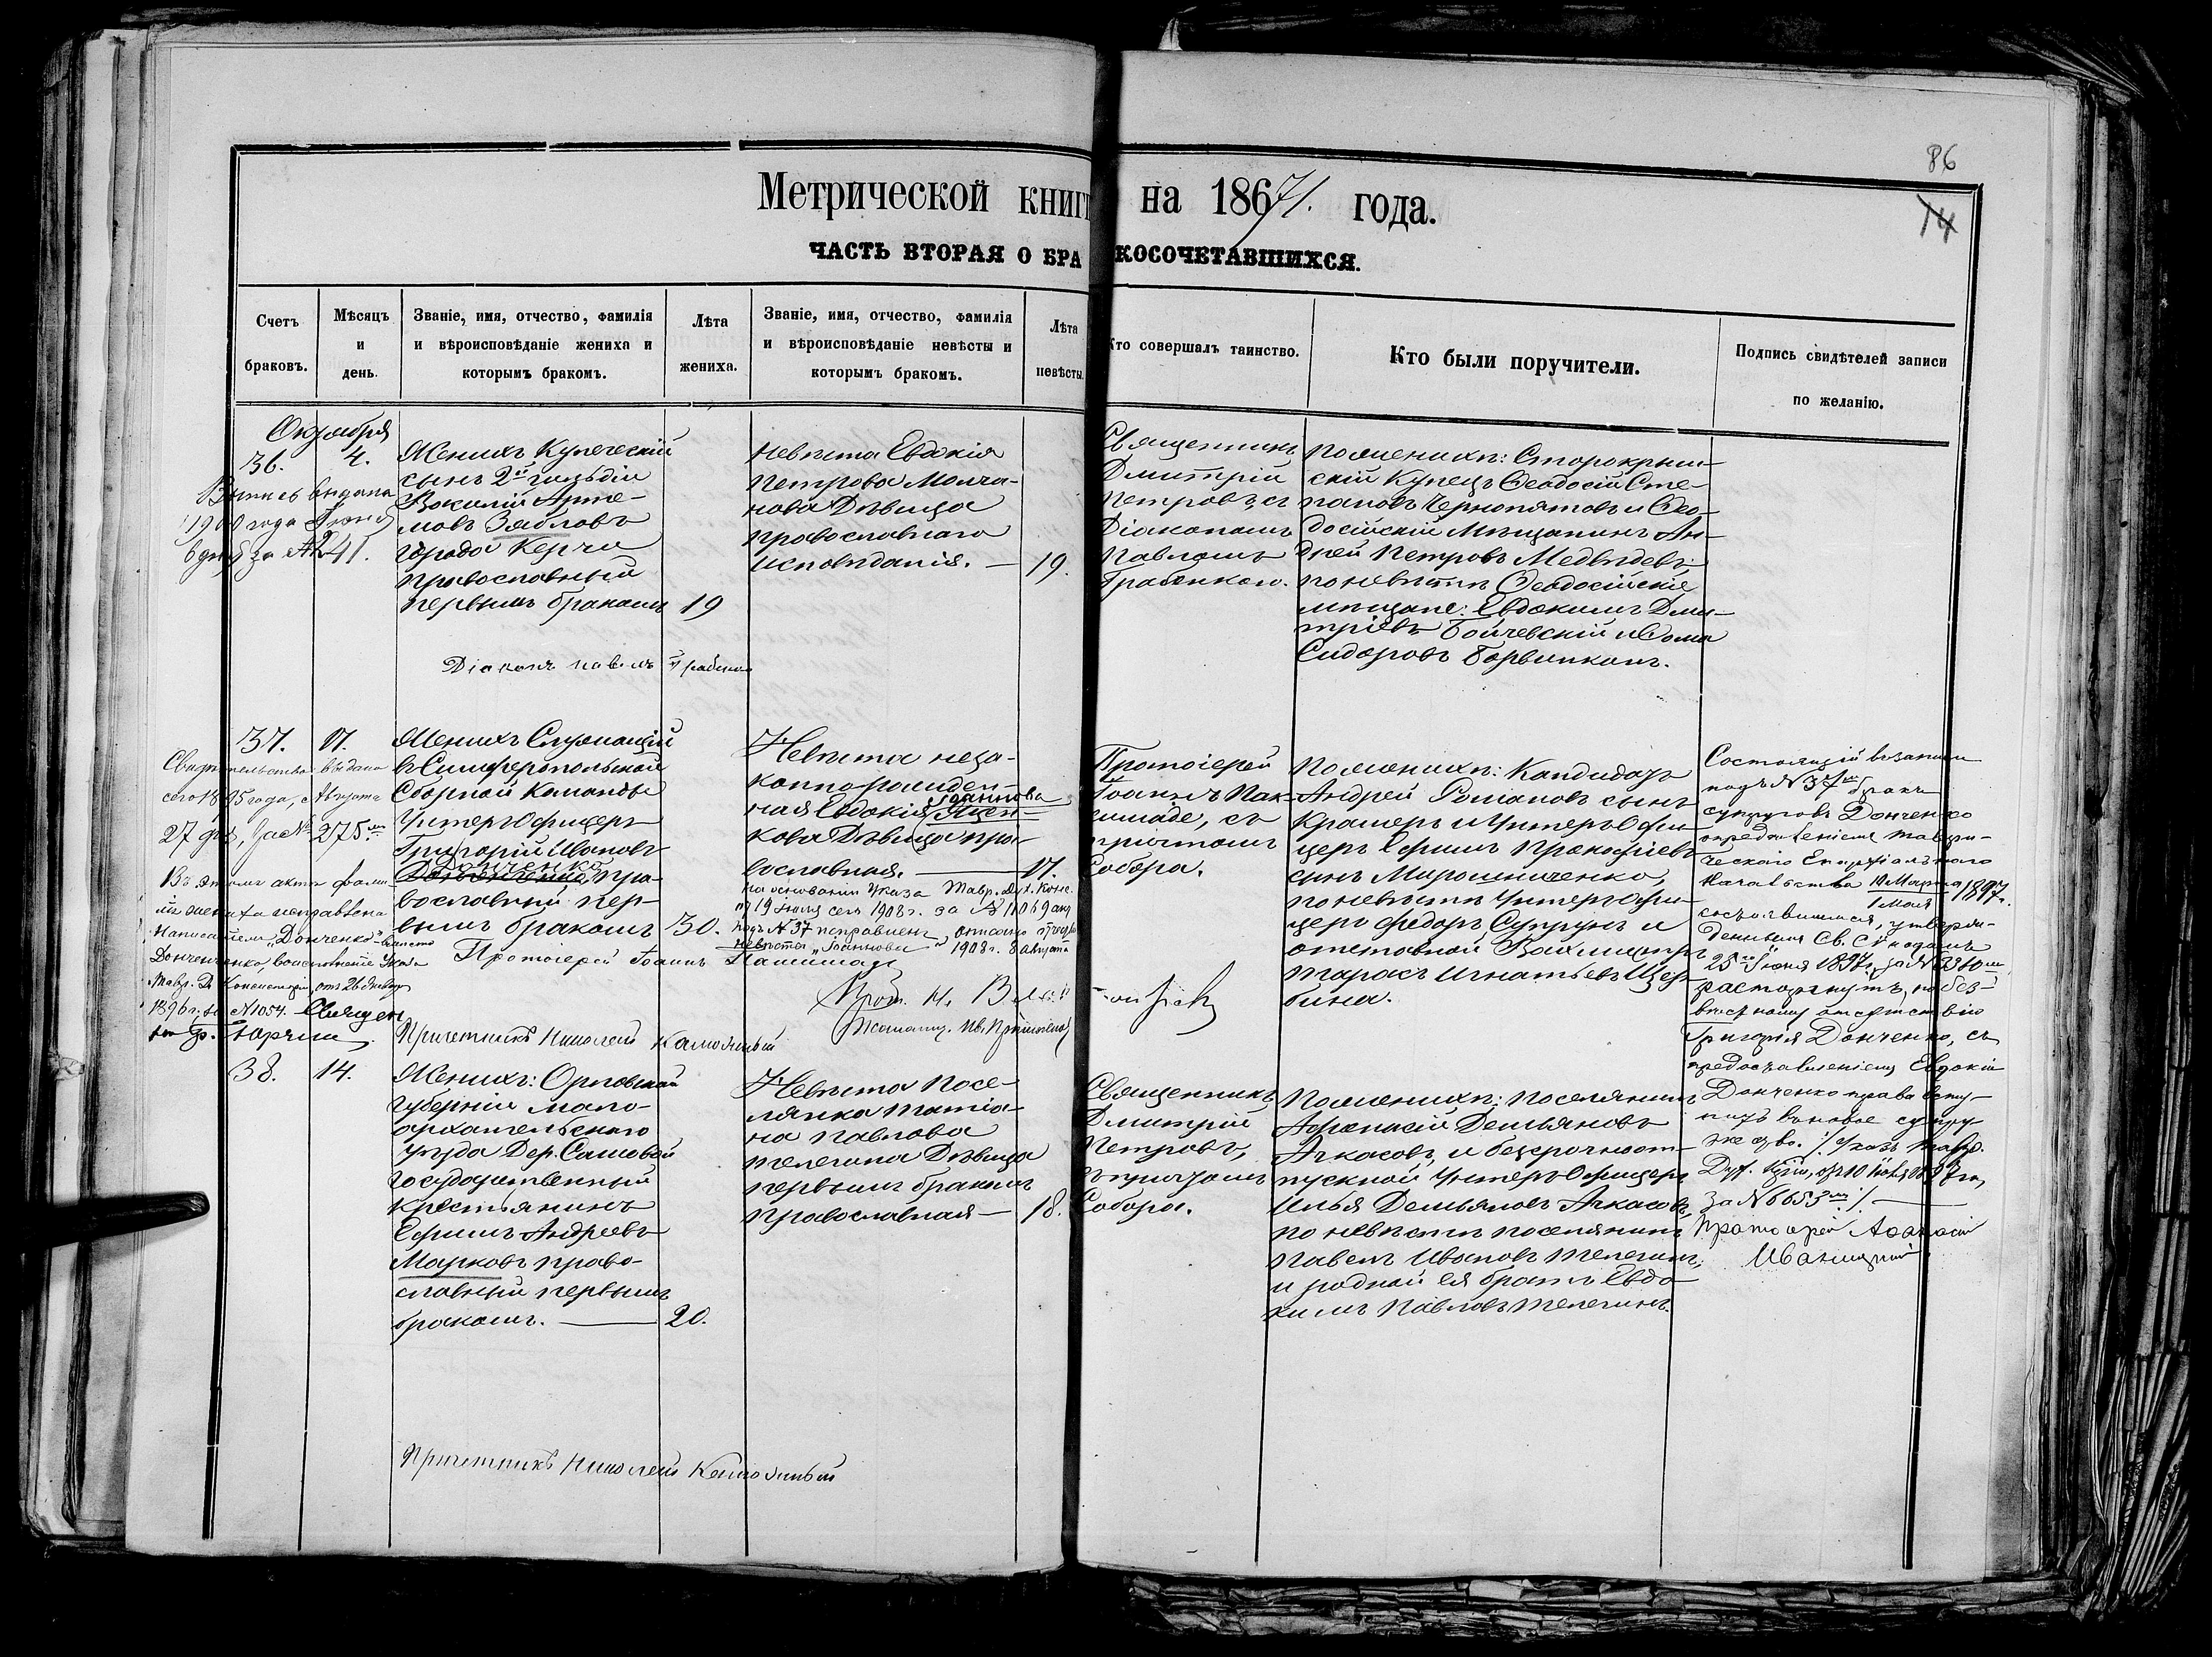 86
14
Метрической книги на 1871. года.
ЧАСТЬ ВТОРАЯ О БРАКОСОЧЕТАВШИХСЯ.
Счетъ браковъ.
Мѣсяцъ и день.
Званіе, имя, отчество, фамилія и вѣроисповѣданіе жениха и которымъ бракомъ.
Лѣта жениха.
Званіе, имя, отчество, фамилія и вѣроисповѣданіе невѣсты и которымъ бракомъ.
Лѣта невѣсты.
Кто совершалъ таинство.
Кто были поручители.
Подпись свидѣтелей записи по желанію.
Октября
36.
4.
Выпись выдана
1900 года Іюня
6 дня за № 241.
Женихъ Купеческій
сынъ 2й гильдіи
Арте-
мовъ Зябловъ
города Керчи
православный
первымъ бракомъ
19
невѣста Евдокія
Петрова Молча-
нова Дѣвица
православнаго
исповѣданія. —
19.
Священникъ
Дмитрій
Петровъ, съ
Діакономъ
Павломъ
Грабенкою.
по женихѣ: Старокрым-
скій Купецъ Феодосій Сте-
пановъ Чернопятовъ и Фео-
досійскій Мѣщанинъ Ан-
дрей Петровъ Медвѣдевъ;
по невѣстѣ Феодосійскіе
мѣщане: Евдокимъ Дми-
тріевъ Бойчевскій и Фома
Сидоровъ
Діаконъ Павелъ Грабенко
37.
17.
Свидѣтельство выдано
сего 1895 года, Августа
27 дня, за № 275м
Въ этомъ актѣ фами-
лія жениха исправлена
написаніемъ „Донченко" вмѣсто
Донченченко, во исполненіе Указа
Тавр. Д. Консисторіи, отъ 26 Января
1896 г. за № 1054. Священ
Гр. Юрчи
Женихъ Служащій
въ Симферопольской
Сборной Командѣ
Унтеръ Офицеръ
Григорій Ивановъ
Донченко, пра-
вославный пер-
вымъ бракомъ
30.
Протоіерей Іоаннъ Паксимаде
Причетникъ Николай
Невѣста неза-
коннорожден-
ная Евдокія Іоаннова
кова Дѣвица пра-
вославная. —
17.
на основаніи Указа Тавр. Дух. Конс.
отъ 19 Іюля сего 1908 г. за №
подъ № 37 исправлен отчество
невѣсты „Іоаннова" 1908 г. 8 Августа
Протоіерей
Іоаннъ Пак-
симаде, съ
причтомъ
Собора.
по женихѣ: Кандидатъ
Андрей Романовъ сынъ
Крамеръ и Унтеръ Офи-
церъ Ефимъ Прокофіевъ
сынъ Мирошниченко,
по невѣстѣ Унтеръ Офи-
церъ Федоръ Супрунъ и
отставной Вахмистръ
Тарасъ Игнатьевъ Щер-
бина.
Состоящій въ записи
подъ № 37м бракъ
супруговъ Донченко
опредѣленіемъ Таври-
ческаго Епархіальнаго
Начальства 10 Марта / 1 Мая 1897 г.
состоявшимся, утверж-
деннымъ Св. Синодомъ
25го Іюня 1897 г. за № 3310м,
расторгнутъ, по без-
вѣстному отсутствію
Григорія Донченко, съ
предоставленіемъ Евдокіи
Донченко права всту-
пить въ новое супру-
жество. /Указъ Тавр.
Дух. Конс., отъ 10 1897 г.,
за № 6653м/. —
Протоіерей
38.
14.
Женихъ: Орловской
губерніи мало-
архангельскаго
уѣзда Дер. Сашовой
государственный
крестьянинъ
Ефимъ Андреевъ
Марковъ право-
славный первымъ
бракомъ. —
20.
Невѣста Посе-
лянка Татіа-
на Павлова
Телегина Дѣвица
первымъ бракомъ
православная —
18.
Священникъ
Дмитрій
Петровъ,
съ причтомъ
Собора.
по женихѣ: поселянинъ
Афанасій Демьяновъ
Ачкасовъ, и безсрочноот-
пускной Унтеръ Офицеръ
Илья Демьяновъ Ачкасовъ,
по невѣстѣ поселянинъ
Павелъ Ивановъ Телегинъ,
и родной ея братъ Евдо-
кимъ Павловъ Телегинъ.
Причетникъ Николай